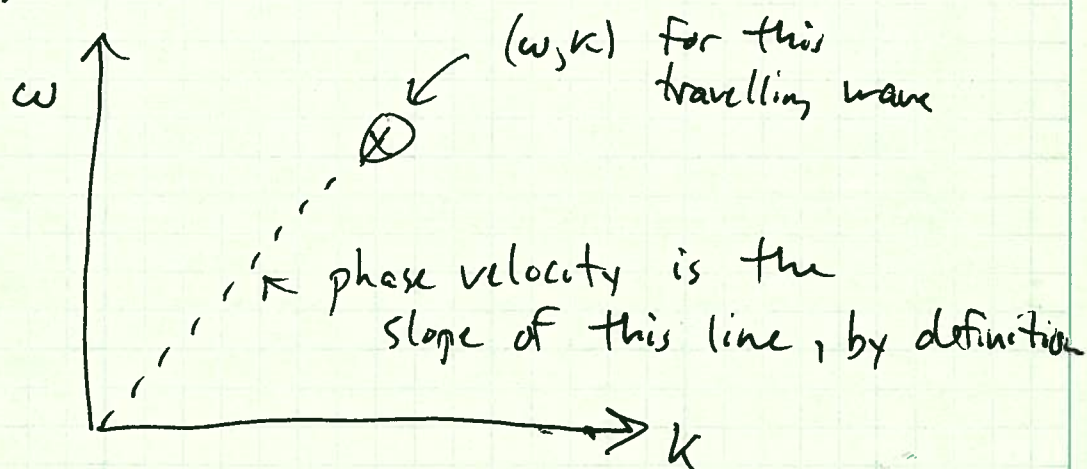 (ω,k) for this
travelling wave
ω
X
phase velocity is the
slope of this line, by definition
k